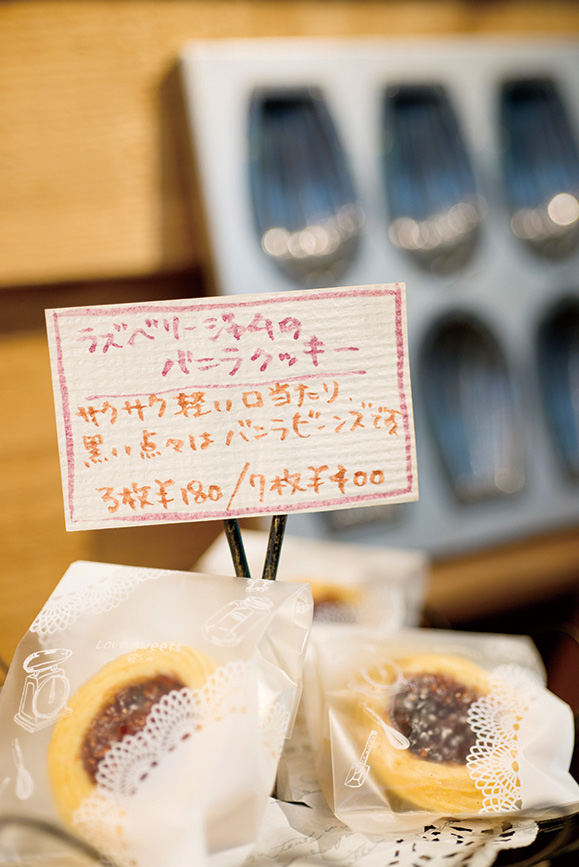 ラズベリージャムの
バニラクッキー
サクサク軽い口当たり
黒い点々はバニラビーンズです
3枚¥180/7枚¥400
Love sweets